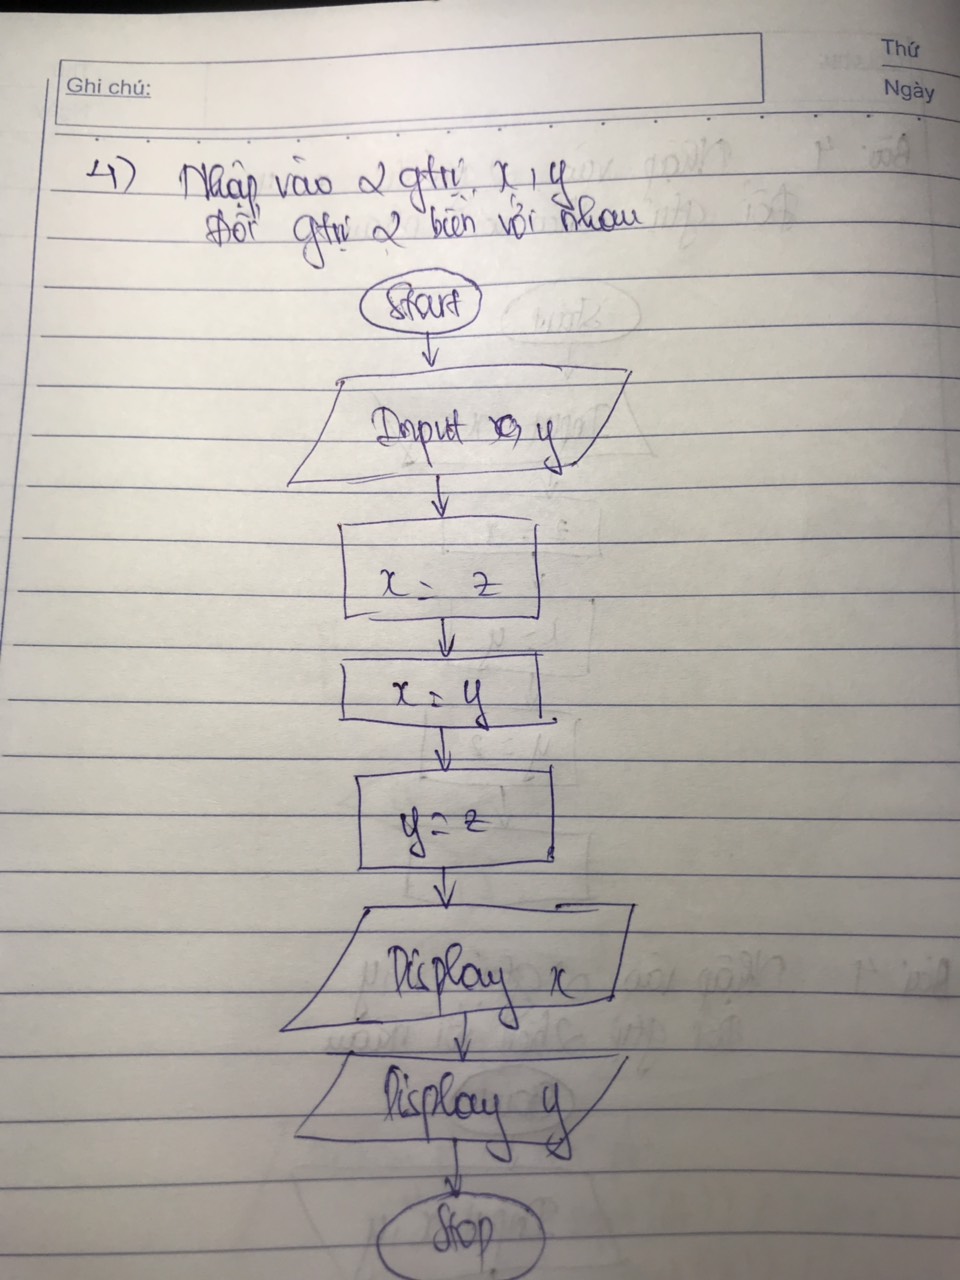 Thứ
Ghi chú:
Ngày
4) Nhập vào 2 gtrị x, y
Đổi gtrị 2 biến với nhau
Start
Input x, y
x = z
x = y
y = z
Display x
Display y
Stop